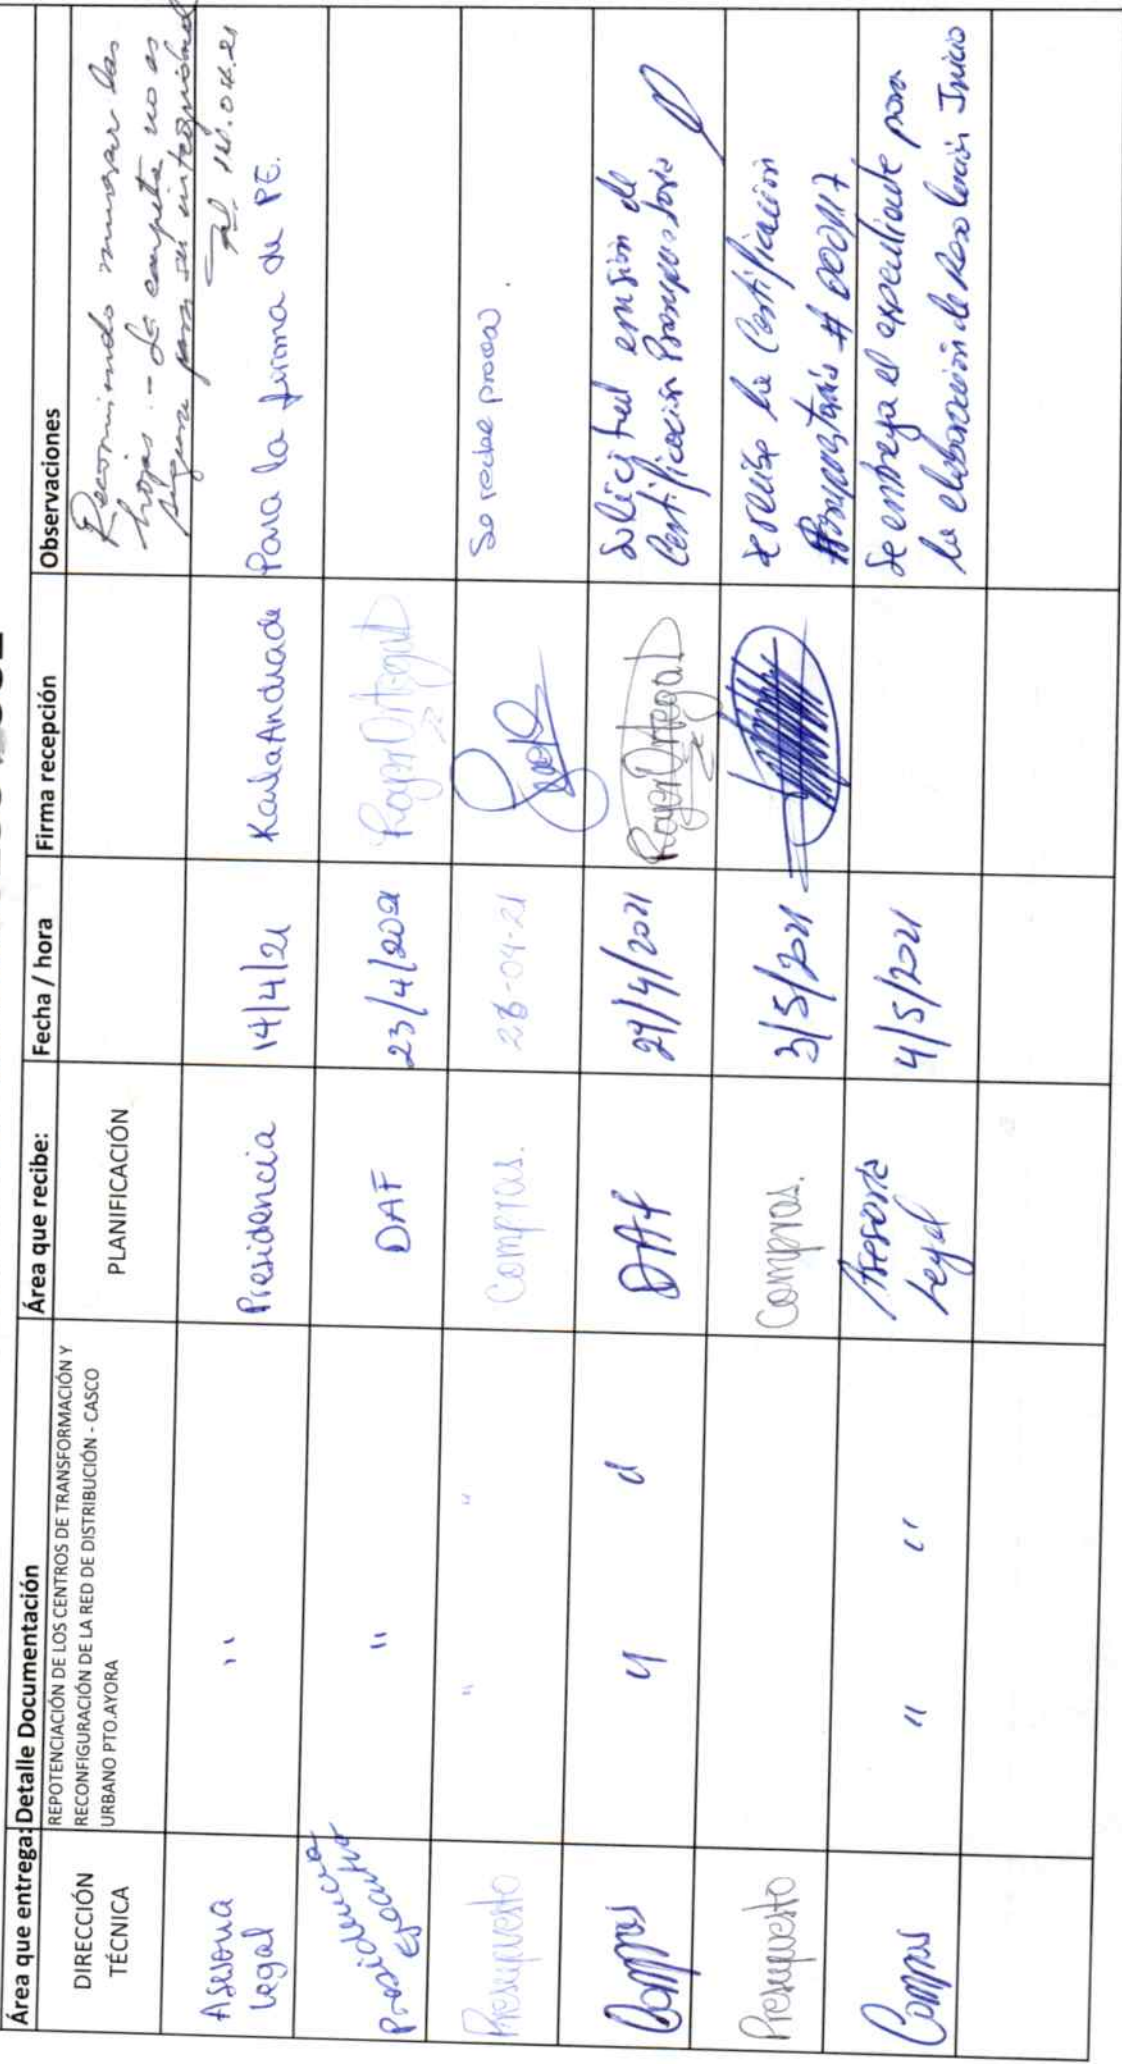 Área que entrega: Detalle Documentación Área que recibe: Fecha / hora Firma recepción Observaciones
DIRECCIÓN
TÉCNICA
REPOTENCIACIÓN DE LOS CENTROS DE TRANSFORMACIÓN Y
RECONFIGURACIÓN DE LA RED DE DISTRIBUCIÓN - CASCO
URBANO PTO.AYORA
PLANIFICACIÓN
Recomiendo numerar las
hojas. - La carpeta no es
segura para su integridad
14.04.21
Asesoria
Legal
"
Presidencia
14/4/21
Karla Andrade
Para la firma de PE.
Presidencia
Ejecutiva
"
DAF
23/4/2021
Roger Ortega
Presupuesto
" "
Compras.
28-04-21
Se recibe proceso.
Compras
" "
DAF
29/4/2021
Roger Ortega
Solicitud emisión de
Certificación Presupuestaria
Presupuesto
Compras.
3/5/2021
Se recibe la Certificación
Presupuestaria #
Compras
" "
Asesoría
Legal
4/5/2021
Se entrega el expediente para
la elaboración de Resolución Inicio